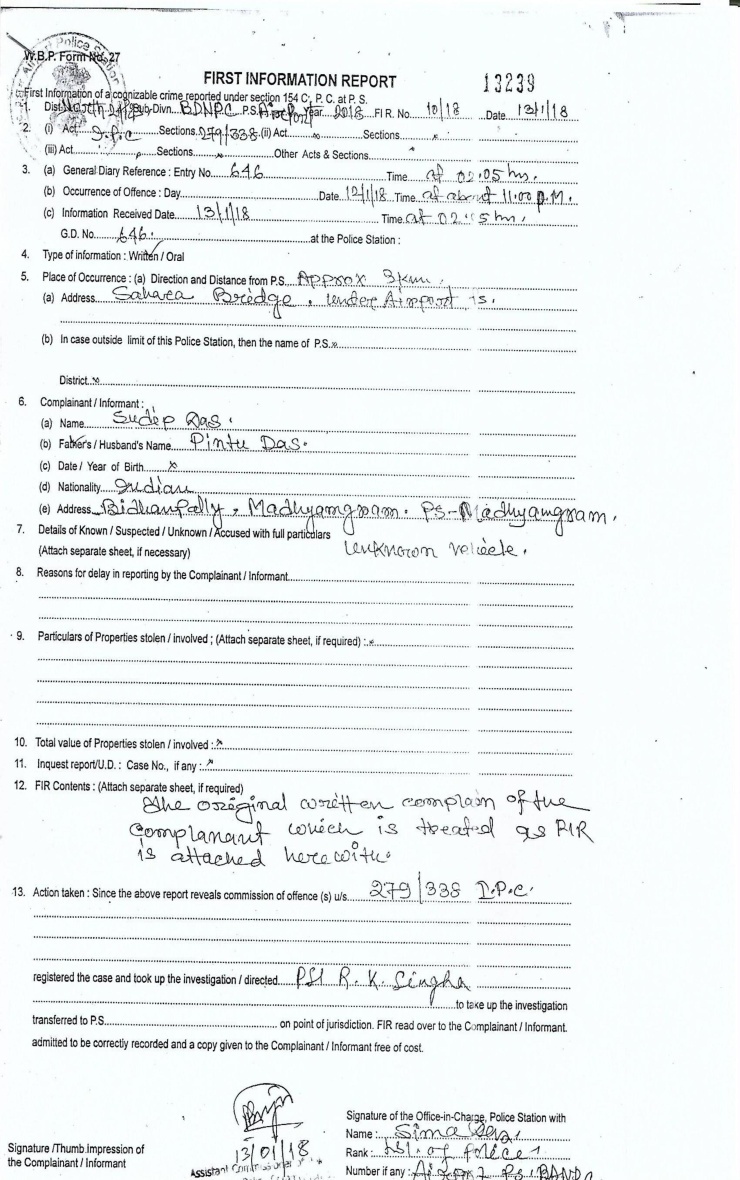 W.B.P. Form No. 27
FIRST INFORMATION REPORT
13239
First Information of a cognizable crime reported under section 154 C, P. C. at P. S.
1. Dist. North 24 Sub-Divn. BDNPC P.S. Airport Year 2018 FIR. No. 10/18 Date 13/1/18
2. (i) Act I.P.C Sections 279/338 (ii) Act x Sections x
(iii) Act Sections x Other Acts & Sections
3. (a) General Diary Reference : Entry No. 646 Time at 02.05 hrs.
(b) Occurrence of Offence : Day Date 12/1/18 Time at about 11:00 P.M.
(c) Information Received Date 13/1/18 Time at 02.05 hrs.
G.D. No. 646. at the Police Station :
4. Type of information : Written / Oral
5. Place of Occurrence : (a) Direction and Distance from P.S. Approx 3km.
(a) Address Sahara Bridge, under Airport PS.
(b) In case outside limit of this Police Station, then the name of P.S. x
District. x
6. Complainant / Informant :
(a) Name Sudip Das.
(b) Father's / Husband's Name Pintu Das.
(c) Date / Year of Birth x
(d) Nationality Indian
(e) Address Bidhanpally, Madhyamgram. PS-Madhyamgram.
7. Details of Known / Suspected / Unknown / Accused with full particulars
(Attach separate sheet, if necessary) Unknown vehicle.
8. Reasons for delay in reporting by the Complainant / Informant
9. Particulars of Properties stolen / involved ; (Attach separate sheet, if required) : x
10. Total value of Properties stolen / involved : x
11. Inquest report/U.D. : Case No., if any : x
12. FIR Contents : (Attach separate sheet, if required)
The original written complain of the
complanant which is treated as FIR
is attached herewith.
13. Action taken : Since the above report reveals commission of offence (s) u/s. 279/338 I.P.C.
registered the case and took up the investigation / directed PSI R. K. Singha
to take up the investigation
transferred to P.S. on point of jurisdiction. FIR read over to the Complainant / Informant.
admitted to be correctly recorded and a copy given to the Complainant / Informant free of cost.
13/01/18
Assistant
Signature of the Office-in-Charge, Police Station with
Name : Sima
Rank : of police
Number if any : Airport PS.
Signature /Thumb impression of
the Complainant / Informant